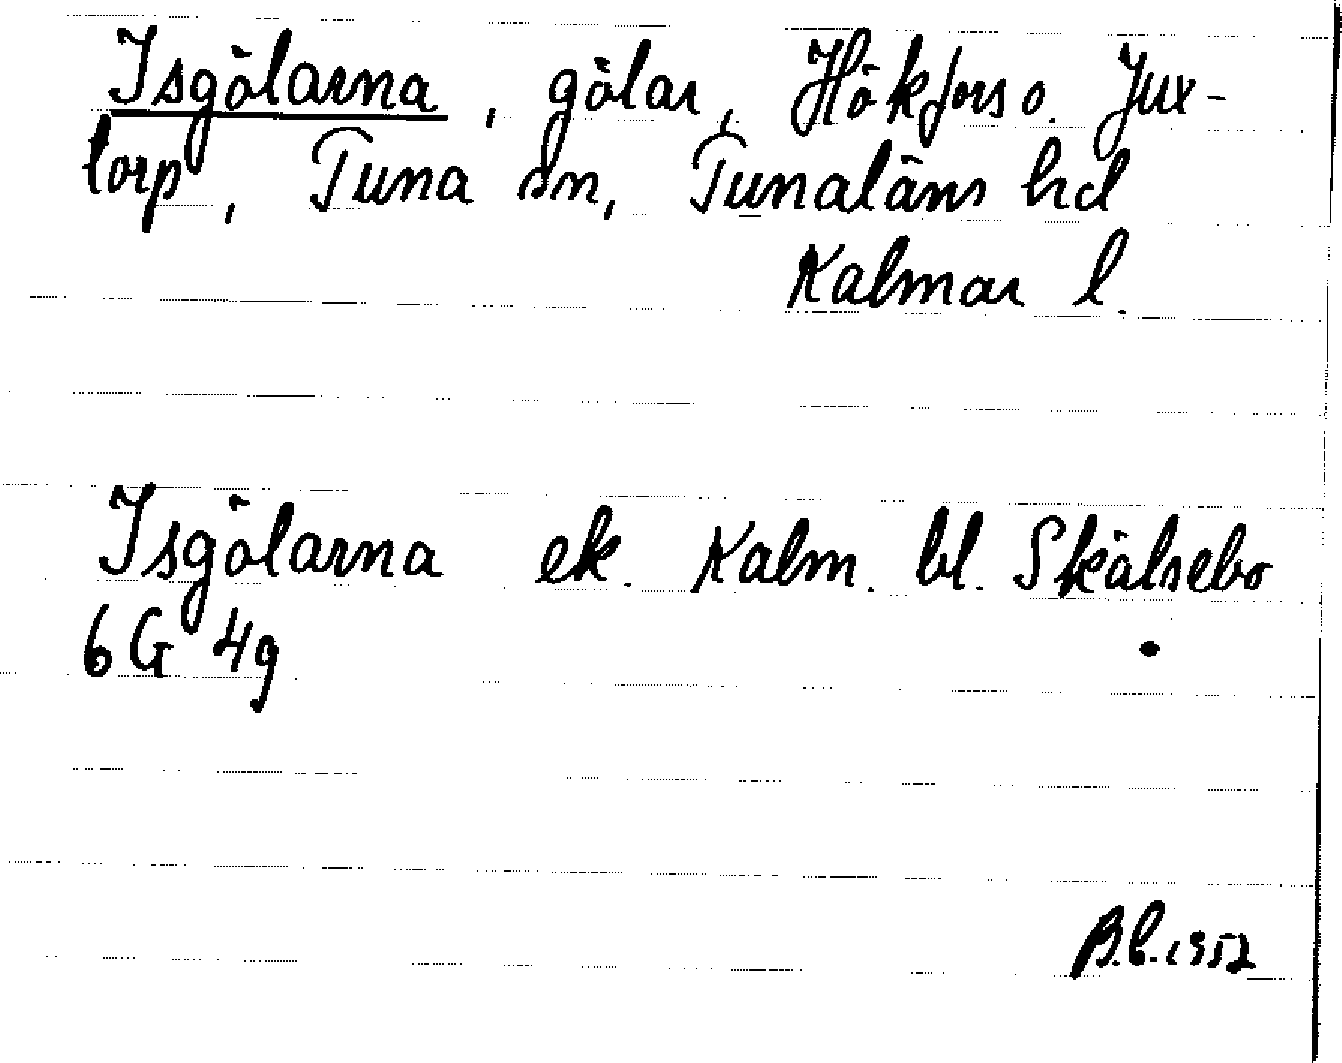 Isgölarna, gölar, Hökfors o. Jux-
torp, Tuna sn, Tunaläns hd
Kalmar l.
Isgölarna ek. Kalm. bl. Skälsebo
6 G 4g
B.b. 1952